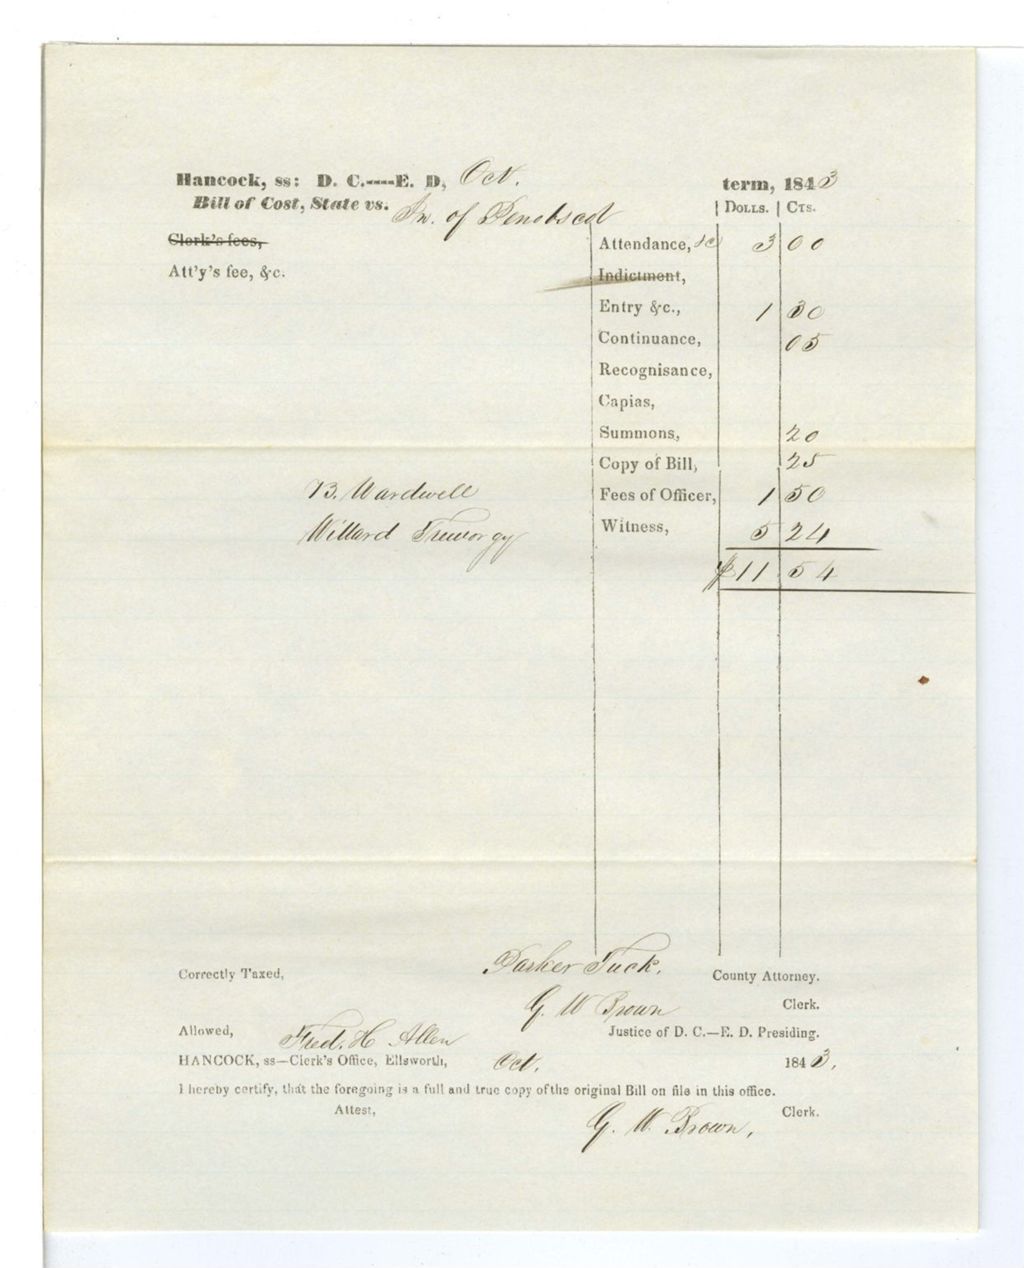 Hancock, ss: D. C.----E. D, Oct. term, 1843
Bill of Cost, State vs. In. of Penobscot | DOLLS. | CTS.
Clerk's fees, Attendance, &c 3 00
Att'y's fee, &c. Indictment,
Entry &c., 1 30
Continuance, 05
Recognisance,
Capias,
Summons, 20
Copy of Bill, 25
B. Wardwell Fees of Officer, 1 50
Willard Treworgy Witness, 5 24
$11 54
Correctly Taxed, Parker Tuck. County Attorney.
G. W Brown Clerk.
Allowed, Fred. H Allen Justice of D. C.—E. D. Presiding.
HANCOCK, ss—Clerk's Office, Ellsworth, Oct. 1843.
I hereby certify, that the foregoing is a full and true copy of the original Bill on file in this office.
Attest, G. W. Brown, Clerk.